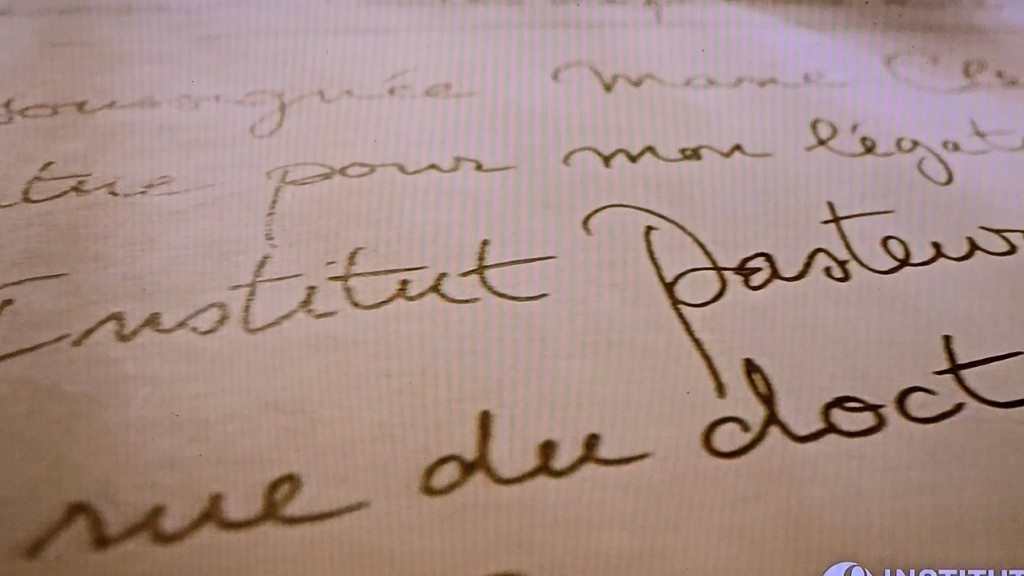 soussignée Marie Cla
tue pour mon légat
Institut Pasteur
rue du doct
INSTITUT